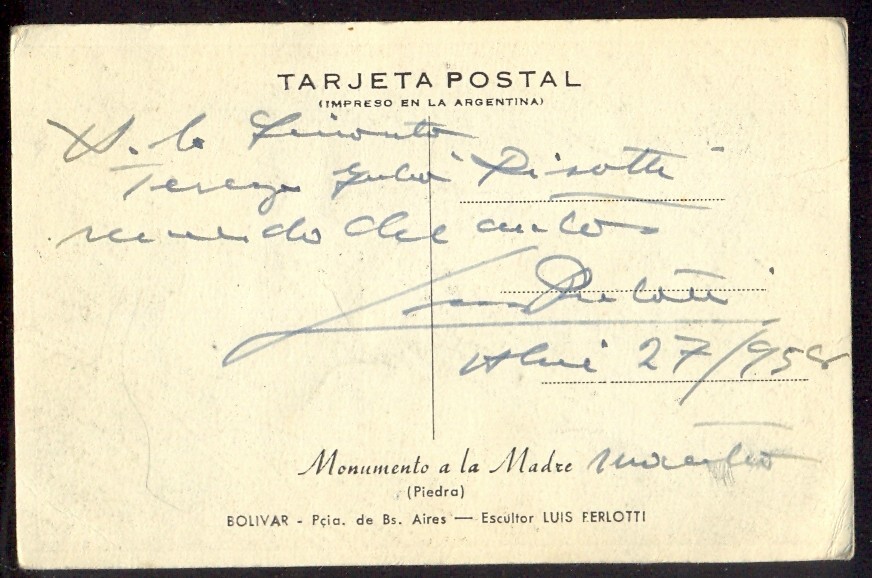 TARJETA POSTAL
(IMPRESO EN LA ARGENTINA)
A la
Teresa
recuerdo del autor
Luis Perlotti
27/958
Monumento a la Madre
(Piedra)
BOLIVAR - Pcia. de Bs. Aires — Escultor LUIS FERLOTTI